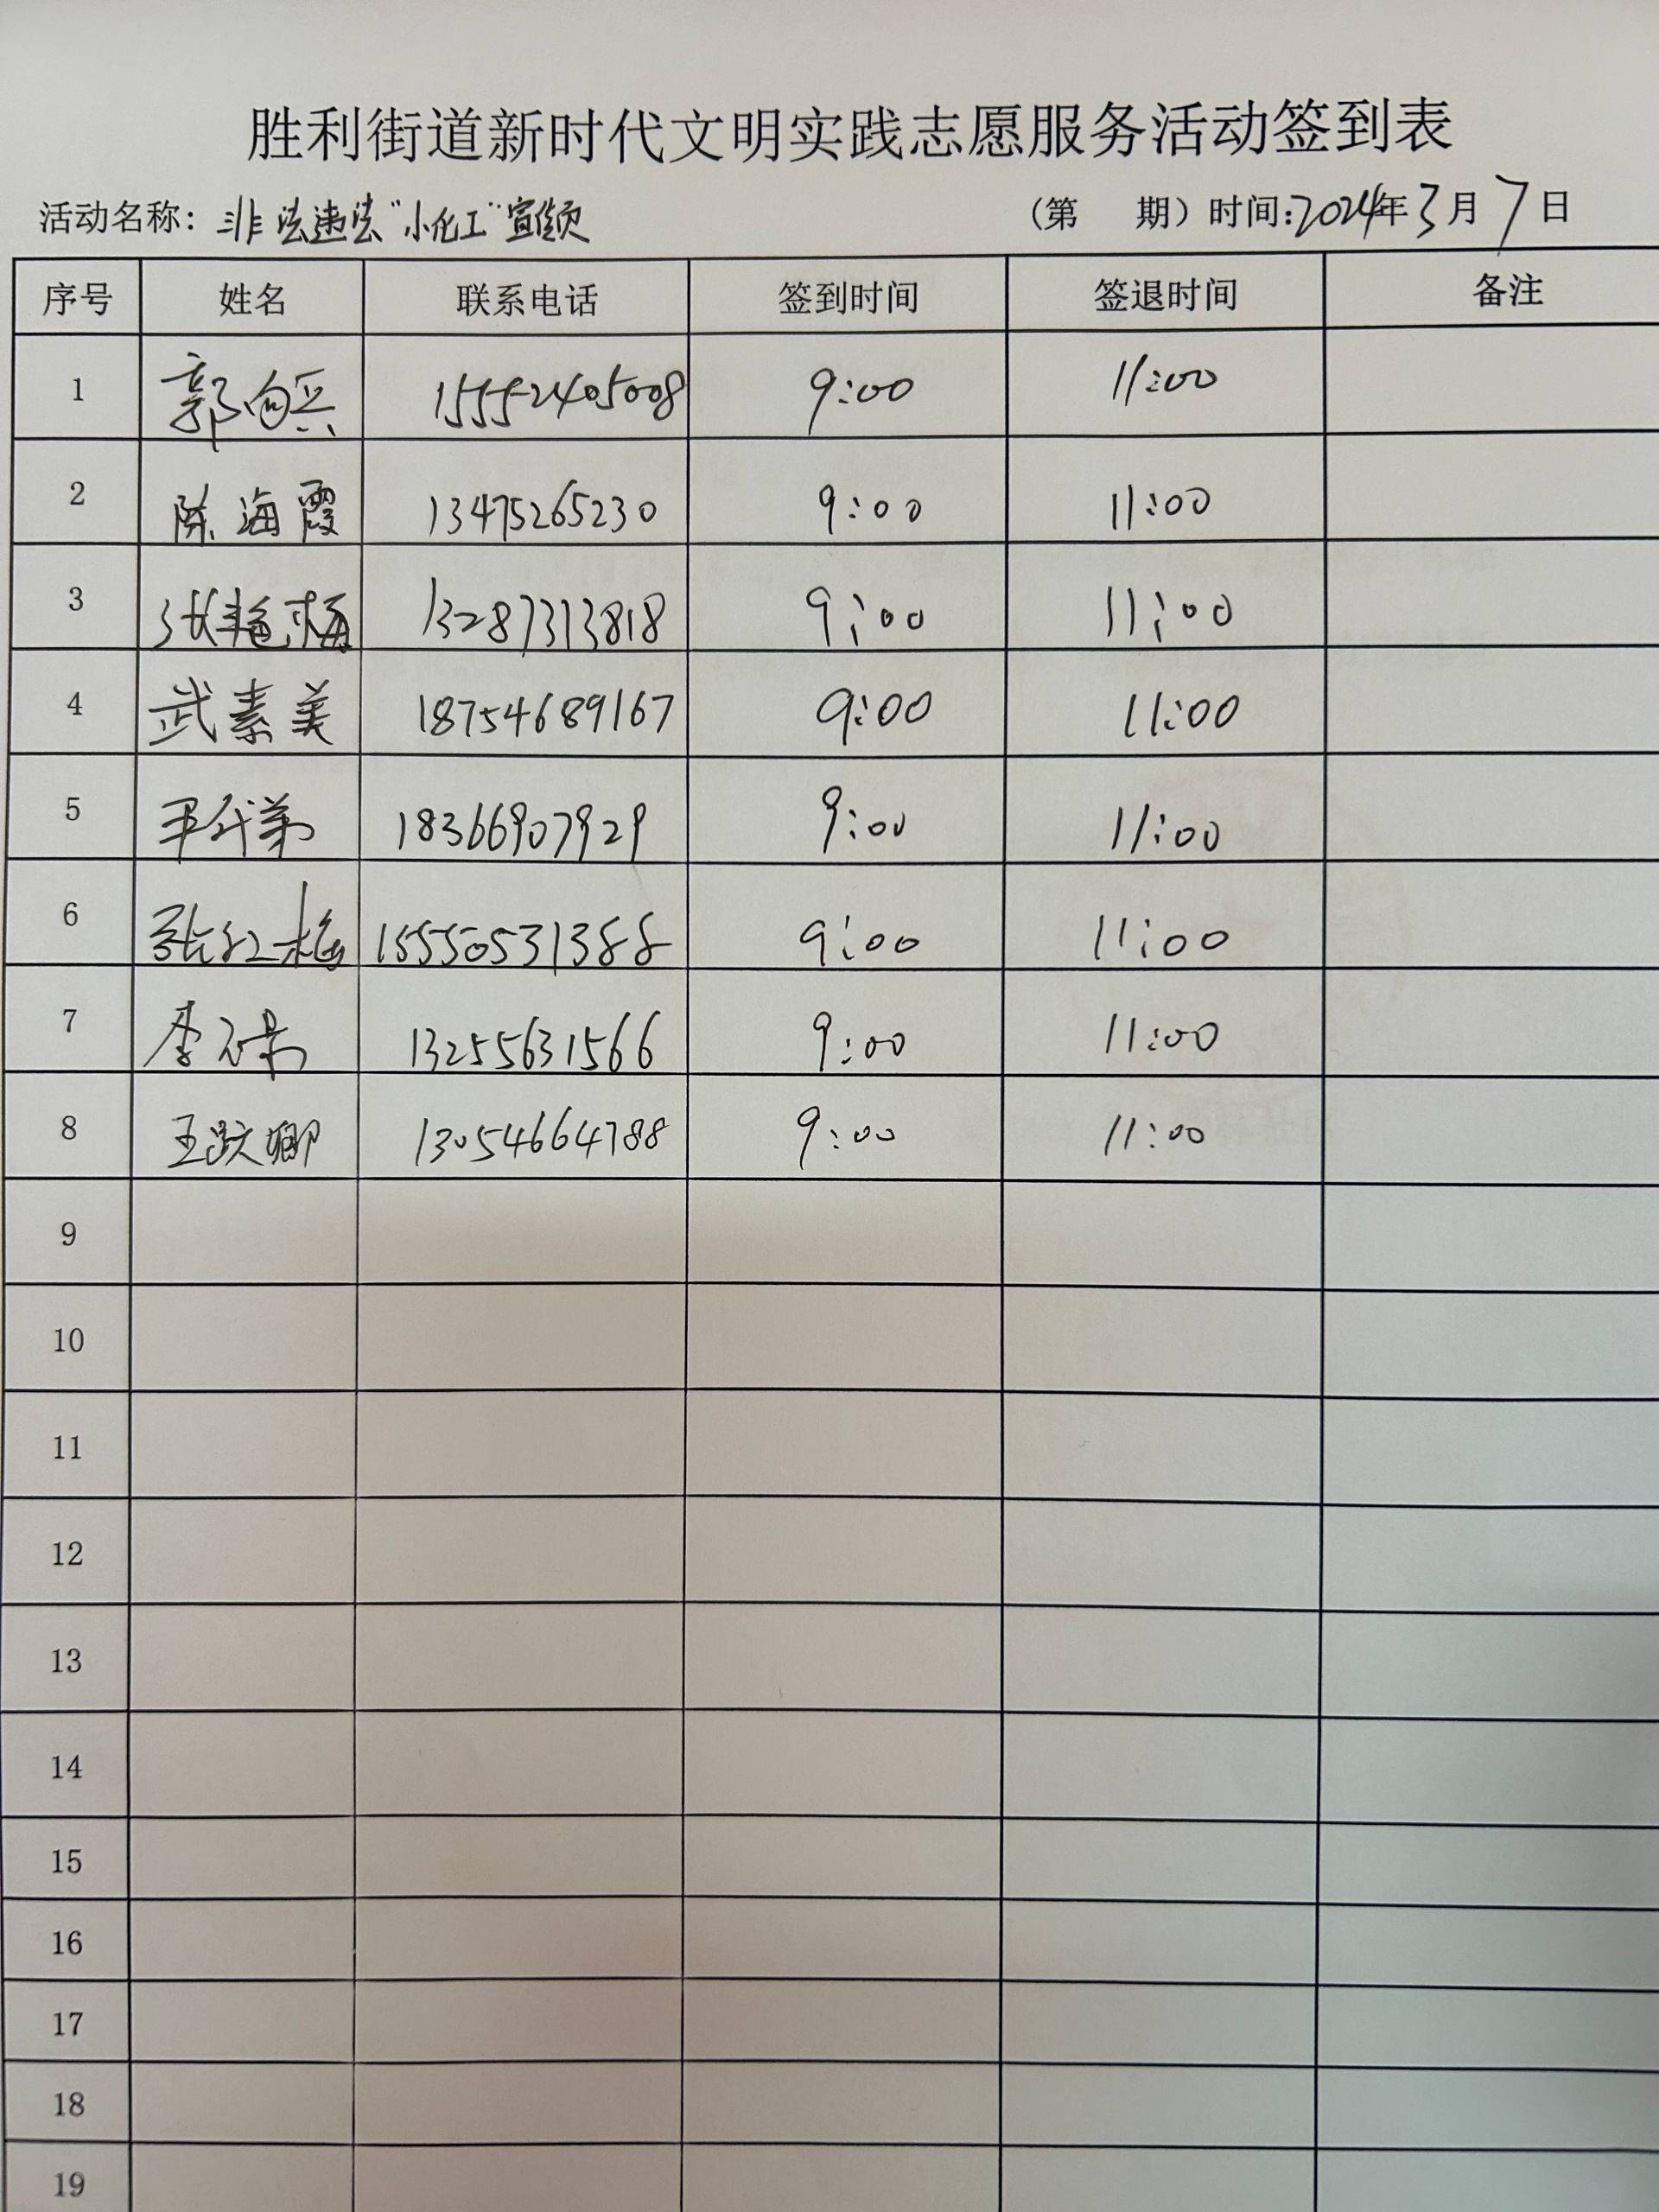 胜利街道新时代文明实践志愿服务活动签到表
活动名称：非法违法“小化工”宣 （第 期）时间：2024年3月7日
序号 姓名 联系电话 签到时间 签退时间 备注
1 郭向兵 15552405008 9:00 11:00
2 陈海霞 13475265230 9:00 11:00
3 张艳梅 13287313818 9:00 11:00
4 武素美 18754689167 9:00 11:00
5 18366907929 9:00 11:00
6 张红梅 15550531388 9:00 11:00
7 李 13255631566 9:00 11:00
8 王跃娜 13054664788 9:00 11:00
9
10
11
12
13
14
15
16
17
18
19